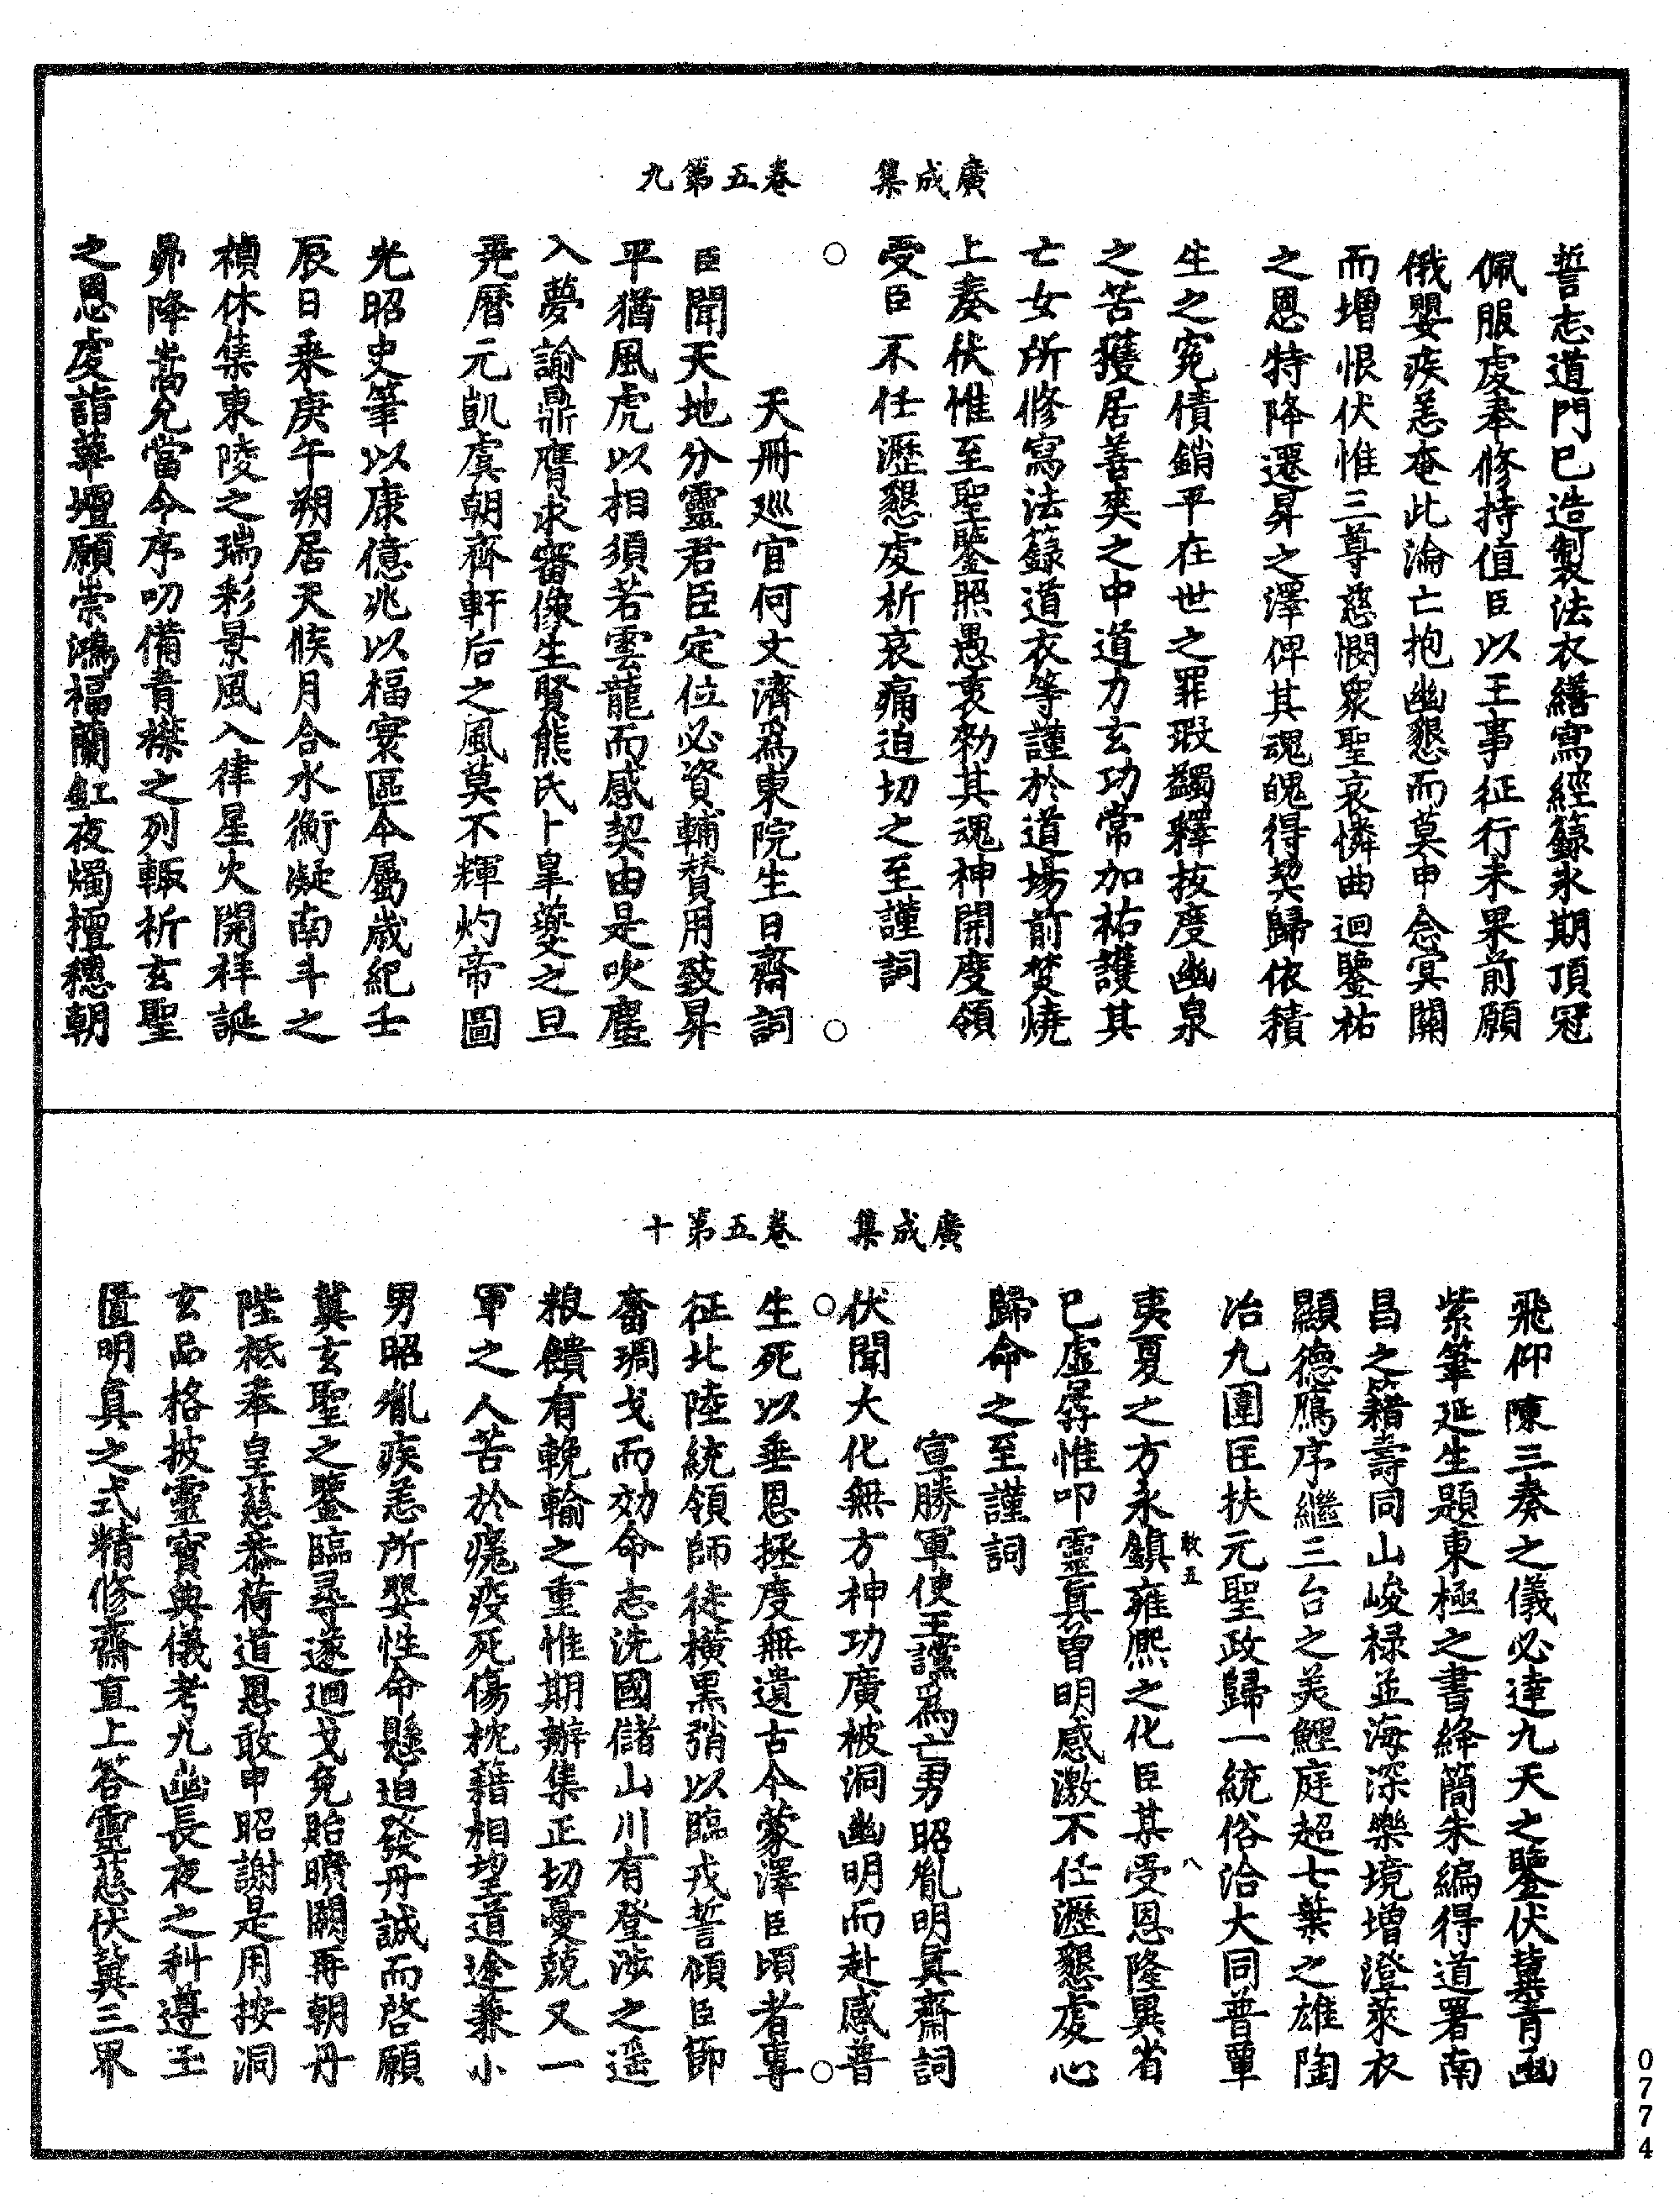 廣成集　卷五第九
誓志道門已造製法衣繕寫經籙永期頂冠
佩服虔奉修持值臣以王事征行未果前願
俄嬰疾恙奄此淪亡抱幽懇而莫申念冥關
而增恨伏惟三尊慈憫衆聖哀憐曲迴鑒祐
之恩特降遷昇之澤俾其魂魄得契歸依積
生之寃債銷平在世之罪瑕蠲釋拔度幽泉
之苦獲居善爽之中道力玄功常加祐護其
亡女所修寫法籙道衣等謹於道場前焚燒
上奏伏惟至聖鑒照愚衷勑其魂神開度領
受臣不任瀝懇虔祈哀痛迫切之至謹詞
○　○
天冊巡官何文濟爲東院生日齋詞
臣聞天地分靈君臣定位必資輔贊用致昇
平猶風虎以相須若雲龍而感契由是吹塵
入夢諭鼎膺求審像生賢熊氏卜臯夔之旦
堯曆元凱虞朝齊軒后之風莫不輝灼帝圖
光昭史筆以康億兆以福寰區今屬歲紀壬
辰日乘庚午朔居天候月合水衡凝南斗之
禎休集東陵之瑞彩景風入律星火開祥誕
昴降嵩允當今序叨備青襟之列輒祈玄聖
之恩虔詣華壇願崇鴻福蘭釭夜燭檀穗朝
廣成集　卷五第十
飛仰陳三奏之儀必達九天之鑒伏冀青函
紫筆延生題東極之書絳簡朱編得道署南
昌之籍壽同山峻祿並海深樂境增澄萊衣
顯德鴈序繼三台之美鯉庭超七葉之雄陶
冶九圍匡扶元聖政歸一統俗洽大同普覃
敢五　八
夷夏之方永鎮雍熈之化臣某受恩隆異省
已虛孱惟叩靈真曾明感激不任瀝懇虔心
歸命之至謹詞
宣勝軍使王讜爲亡男昭胤明真齋詞
伏聞大化無方神功廣被洞幽明而赴感普
○　○
生死以垂恩拯度無遺古今蒙澤臣頃者專
征北陸統領師徒橫黑矟以臨戎誓傾臣節
奮琱戈而効命志洗國讎山川有登涉之遥
粮饋有輓輸之重惟期辦集正切憂兢又一
軍之人苦於癘疫死傷枕藉相望道途兼小
男昭胤疾恙所嬰性命懸迫發丹誠而啓願
冀玄聖之鑒臨尋遂迴戈免貽曠闕再朝丹
陛祗奉皇慈恭荷道恩敢申昭謝是用按洞
玄品格披靈寳典儀考九幽長夜之科遵玉
匱明真之式精修齋直上答靈慈伏冀三界
0774